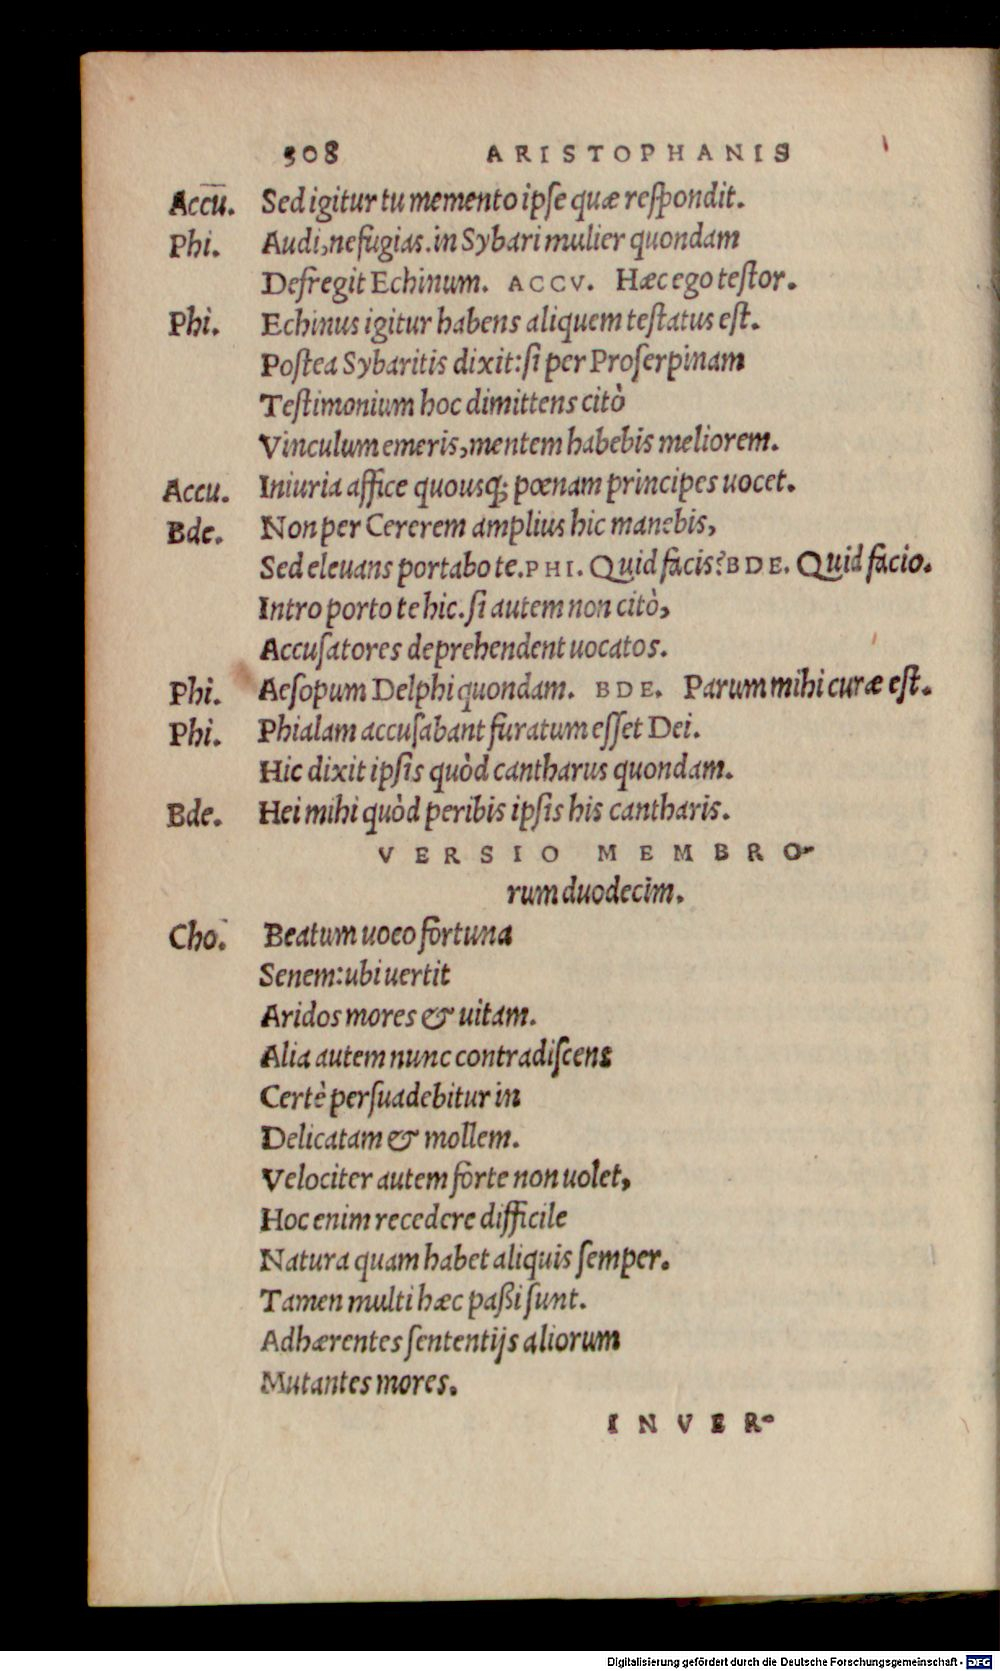 308 ARISTOPHANIS
Accū. Sed igitur tu memento ipſe quæ reſpondit.
Phi. Audi, ne fugias. in Sybari mulier quondam
Defregit Echinum. ACCV. Hæc ego teſtor.
Phi. Echinus igitur habens aliquem teſtatus eſt.
Poſtea Sybaritis dixit: ſi per Proſerpinam
Teſtimonium hoc dimittens citò
Vinculum emeris, mentem habebis meliorem.
Accu. Iniuria affice quousq; pœnam principes uocet.
Bde. Non per Cererem amplius hic manebis,
Sed eleuans portabo te. PHI. Quid facis? BDE. Quid facio.
Intro porto te hic. ſi autem non citò,
Accuſatores deprehendent uocatos.
Phi. Aeſopum Delphi quondam. BDE. Parum mihi curæ eſt.
Phi. Phialam accuſabant furatum eſſet Dei.
Hic dixit ipſis quòd cantharus quondam.
Bde. Hei mihi quòd peribis ipſis his cantharis.
VERSIO MEMBRO-
rum duodecim.
Cho. Beatum uoco fortuna
Senem: ubi uertit
Aridos mores & uitam.
Alia autem nunc contradiſcens
Certè perſuadebitur in
Delicatam & mollem.
Velociter autem forte non uolet,
Hoc enim recedere difficile
Natura quam habet aliquis ſemper.
Tamen multi hæc paßi ſunt.
Adhærentes ſententijs aliorum
Mutantes mores.
INVER-
Digitalisierung gefördert durch die Deutsche Forschungsgemeinschaft - DFG